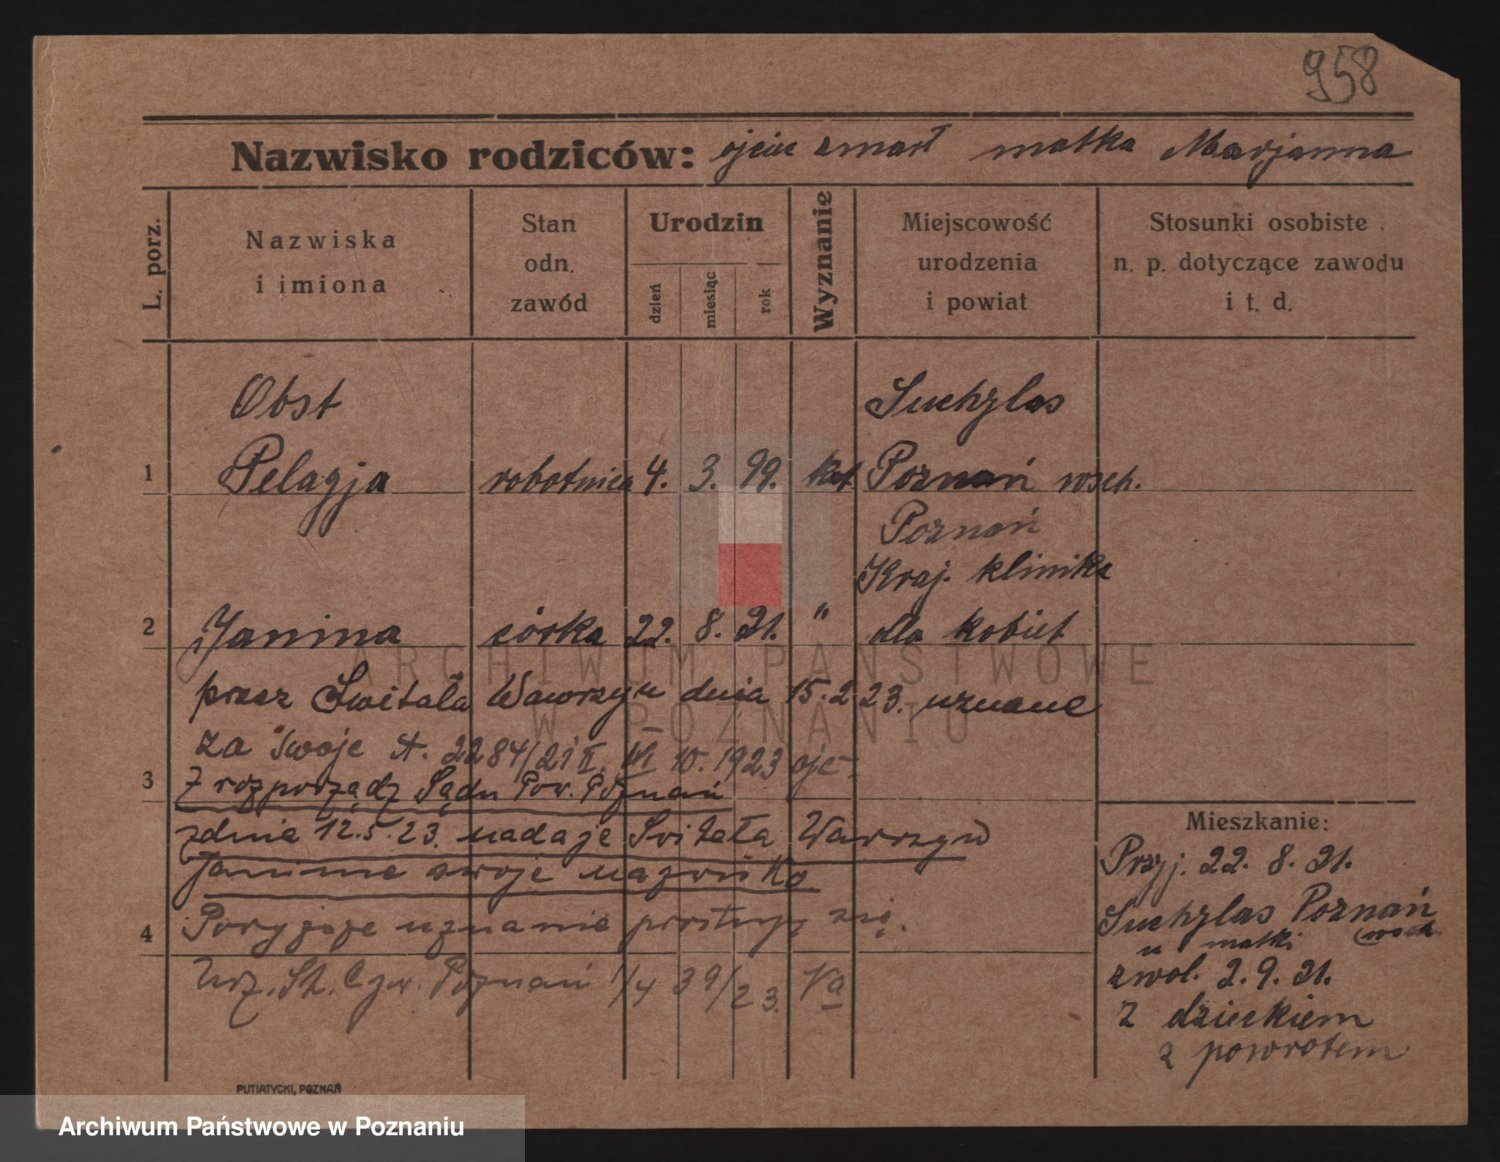 958
Nazwisko rodziców: ojciec zmarł matka Marjanna
L. porz.
Nazwiska
i imiona
Stan
odn.
zawód
Urodzin
dzień
miesiąc
rok
Wyznanie
Miejscowość
urodzenia
i powiat
Stosunki osobiste
n. p. dotyczące zawodu
i t. d.
Obst Suchylas
1 Pelagja robotnica 4. 3. 99. kat. Poznań wsch.
Poznań
Kraj. klinika
2 Janina córka 22. 8. 21. " dla kobiet
przez Switała Wawrzyn dnia 15.2.23. uznane
za swoje A. 2284/21 II. VI 10. 1923
3 Z rozporządz Sądu Pow. Poznań
z dnia 12.5.23. nadaje Świtała Wawrzyn
Janinie swoje nazwisko
4 uznanie prostuje się.
Urz. St. Cyw. Poznań 1/4 39/23. Va
Mieszkanie:
Przyj. 22. 8. 21.
Suchylas Poznań
u matki (wsch.
zwol. 2. 9. 21.
z dzieckiem
z powrotem
PUTIATYCKI, POZNAŃ
ARCHIWUM PAŃSTWOWE
W POZNANIU
Archiwum Państwowe w Poznaniu